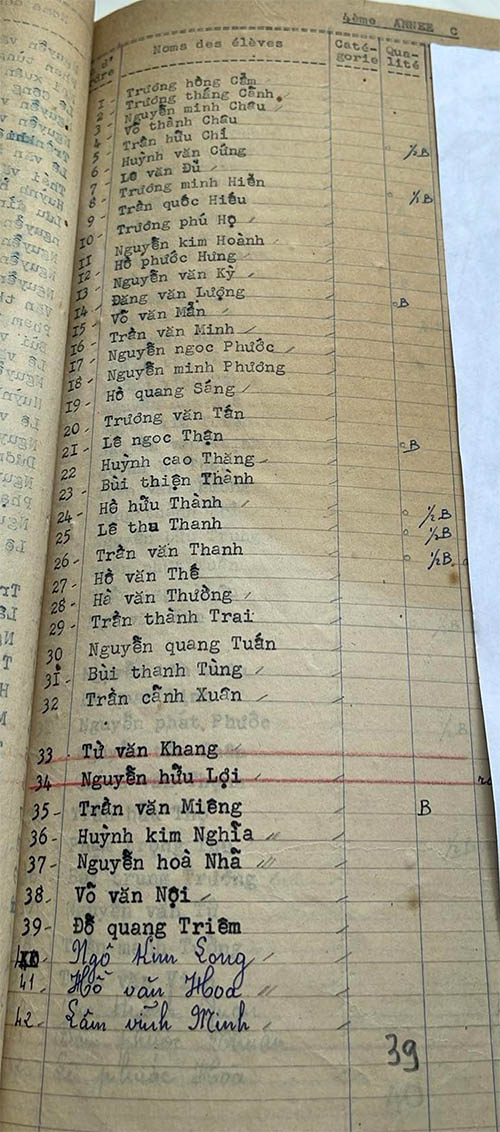 4ème ANNEE C
d'ordre Noms des élèves Caté-gorie Qua-lité
1 - Trương hồng Cẩm
2 - Trương thắng Cảnh
3 - Nguyễn minh Châu
4 - Võ thành Châu
5 - Trần hữu Chí
6 - Huỳnh văn Cứng ½B
7 - Lê văn Đủ
8 - Trương minh Hiển
9 - Trần quốc Hiếu ½B
10 - Trương phú Họ
11 Nguyễn kim Hoành
12 - Hồ phước Hưng
13 - Nguyễn văn Kỳ
14 - Đặng văn Lượng
15 - Võ văn Mẫn B
16 - Trần văn Minh
17 - Nguyễn ngọc Phước
18 - Nguyễn minh Phương
19 - Hồ quang Sáng
20 - Trương văn Tấn
21 - Lê ngọc Thận B
22 Huỳnh cao Thăng
23 - Bùi thiện Thành
24 - Hồ hữu Thành ½B
25 Lê thu Thanh ½B
26 - Trần văn Thanh ½B
27 - Hồ văn Thế
28 - Hà văn Thường
29 - Trần thành Trai
30 Nguyễn quang Tuấn
31 - Bùi thanh Tùng
32 Trần cảnh Xuân
33 Từ văn Khang
34 Nguyễn hữu Lợi
35 - Trần văn Miêng B
36 - Huỳnh kim Nghĩa
37 - Nguyễn hoà Nhã
38 - Võ văn Nội
39 - Đỗ quang Triêm
Ngô Kim Long
41 - Hồ văn Hoa
42 - Lâm vĩnh Minh
39